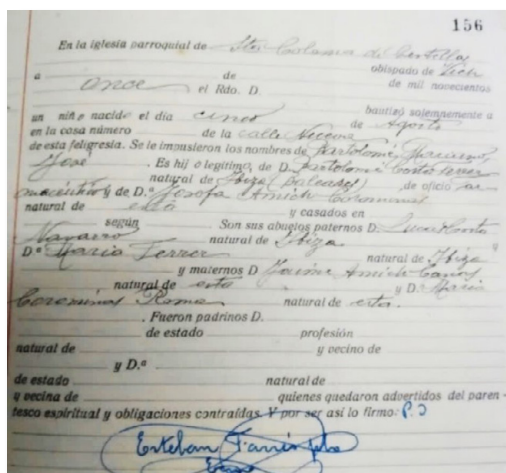 156
En la iglesia parroquial de Sta Coloma de Centellas
obispado de Vich
a once de de mil novecientos
el Rdo. D.
bautizó solemnemente a
un niño nacido el dia cinco de Agosto
en la casa número de la calle
de esta feligresia. Se le impusieron los nombres de Bartolomé,
José . Es hijo legítimo de D. Bartolomé Costa Ferrer
natural de Ibiza (Baleares) , de oficio
y de D.ª Josefa Amich Corominas
natural de esta y casados en
según . Son sus abuelos paternos D. Costa
Navarro natural de Ibiza y
D.ª Maria Ferrer natural de Ibiza
y maternos D Jaime Amich
natural de esta y D. Maria
Corominas Roma natural de esta.
. Fueron padrinos D.
de estado profesión
natural de y vecino de
y D.ª
de estado natural de
y vecina de quienes quedaron advertidos del paren-
tesco espiritual y obligaciones contraídas. Y por ser así lo firmo:
Esteban